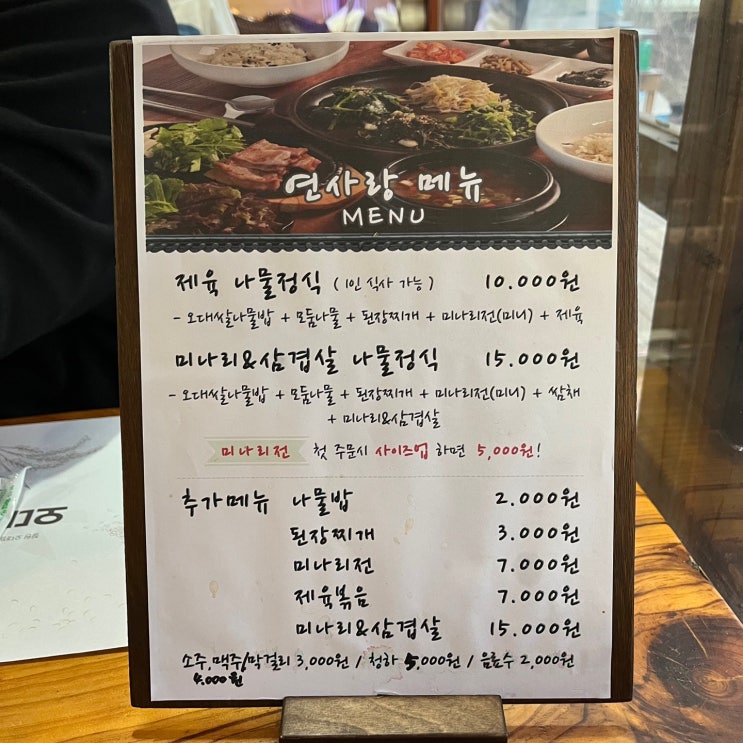 연사랑 메뉴
MENU
제육 나물정식 (1인 식사 가능) 10.000원
- 오대쌀나물밥 + 모둠나물 + 된장찌개 + 미나리전(미니) + 제육
미나리&삼겹살 나물정식 15.000원
- 오대쌀나물밥 + 모둠나물 + 된장찌개 + 미나리전(미니) + 쌈채
+ 미나리&삼겹살
미나리전 첫 주문시 사이즈업 하면 5,000원!
추가메뉴 나물밥 2.000원
된장찌개 3.000원
미나리전 7.000원
제육볶음 7.000원
미나리&삼겹살 15.000원
소주,맥주/막걸리 3,000원 / 청하 5,000원 / 음료수 2,000원
4,000원